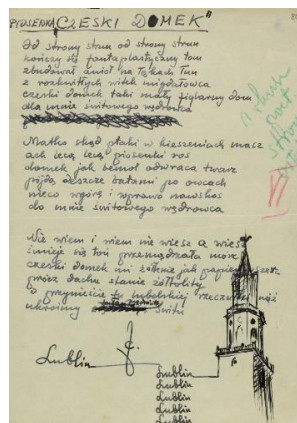 PIOSENKA "CZESKI DOMEK"
Od strony strun od strony strun
kończy się fantaplastyczny tom
zbudował anioł na łąkach
z rozkwitłych witek migdałowca
czeski domek taki mały figlarny dom
dla mnie świtowego wędrowca
Matko skąd ptaki w kieszeniach masz
ach lecą lecą piosenki ros
domek jak bemol odwraca twarz
pójdą deszcze latami po owocach
nieco wgórę i wprawo nawskos
do mnie świtowego wędrowca
Nie wiem i wiem nie wiesz a wiesz
śmieje się toń
czeski domek mi żółknie jak papier
prósz dachu stanie żółtolity
o przymieście tu lubelskiej rzeczułki
ukrainny świtu
Lublin
Lublin
Lublin
Lublin
Lublin
Lublin
VI